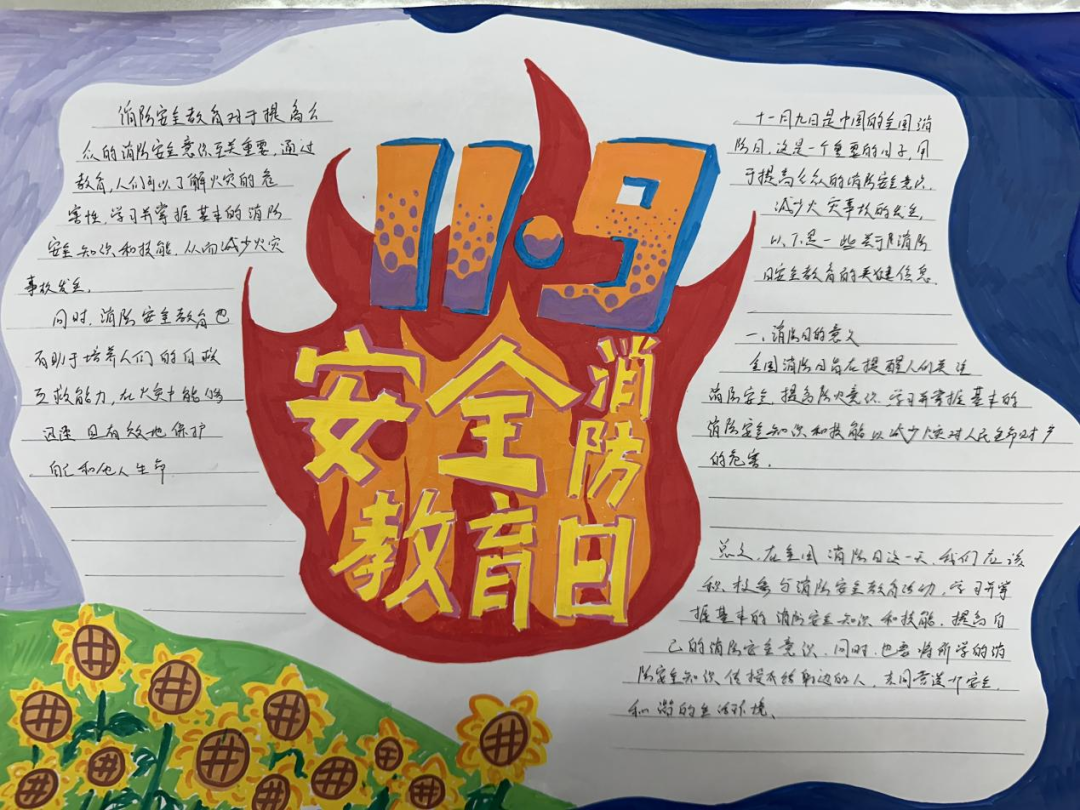 消防安全教育对于提高公
众的消防安全意识至关重要,通过
教育,人们可以了解火灾的危
害性,学习并掌握基本的消防
安全知识和技能,从而减少火灾
事故发生。
同时,消防安全教育也
有助于培养人们的自救
互救能力,在火灾中能够
迅速且有效地保护
自己和他人生命
11·9
安全消防
教育日
十一月九日是中国的全国消
防日,这是一个重要的日子,用
于提高公众的消防安全意识,
减少火灾事故的发生,
以下是一些关于消防
日安全教育的关键信息。
一、消防日的意义
全国消防日旨在提醒人们关注
消防安全,提高防火意识,学习并掌握基本的
消防安全知识和技能以减少火灾对人民生命财产
的危害。
总之,在全国消防日这一天,我们应该
积极参与消防安全教育活动,学习并掌
握基本的消防安全知识和技能,提高自
己的消防安全意识,同时,也要将所学的消
防安全知识传授给身边的人,共同营造一个安全、
和谐的生活环境。